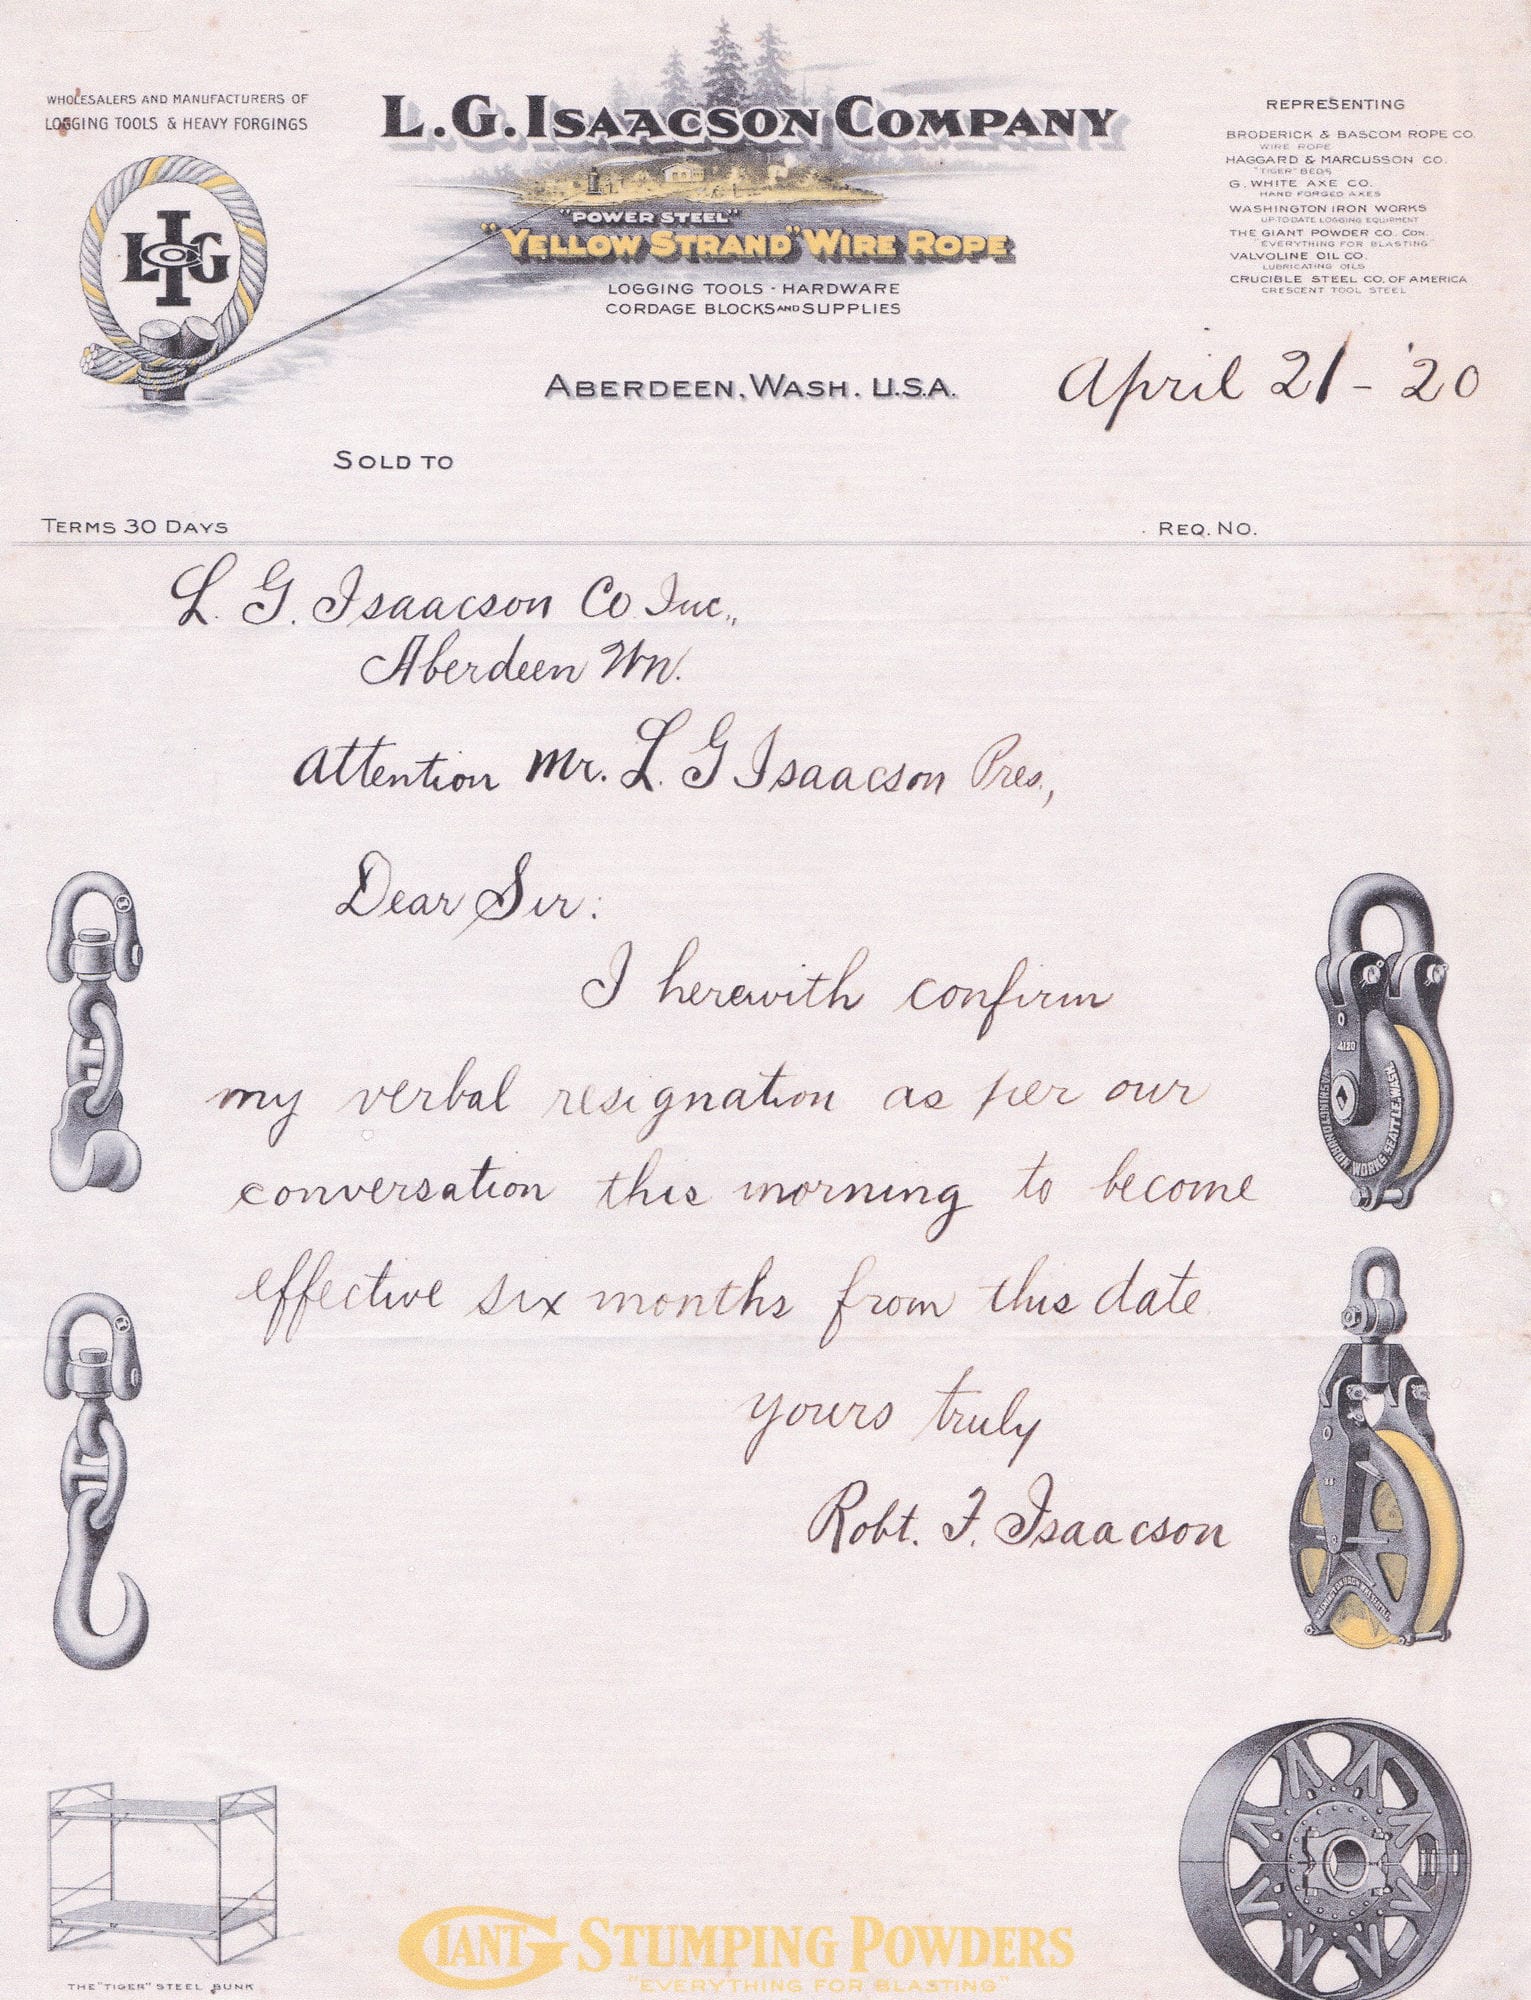 WHOLESALERS AND MANUFACTURERS OF
LOGGING TOOLS & HEAVY FORGINGS
LIG
L.G. ISAACSON COMPANY
"POWER STEEL"
"YELLOW STRAND" WIRE ROPE
LOGGING TOOLS - HARDWARE
CORDAGE BLOCKS AND SUPPLIES
ABERDEEN, WASH. U.S.A.
REPRESENTING
BRODERICK & BASCOM ROPE CO.
WIRE ROPE
HAGGARD & MARCUSSON CO.
"TIGER" BEDS
G. WHITE AXE CO.
HAND FORGED AXES
WASHINGTON IRON WORKS
UP TO DATE LOGGING EQUIPMENT
THE GIANT POWDER CO. CON.
"EVERYTHING FOR BLASTING"
VALVOLINE OIL CO.
LUBRICATING OILS
CRUCIBLE STEEL CO. OF AMERICA
CRESCENT TOOL STEEL
April 21 - '20
SOLD TO
TERMS 30 DAYS
REQ. NO.
L. G. Isaacson Co Inc.,
Aberdeen Wn.
Attention Mr. L. G Isaacson Pres.,
Dear Sir:
I herewith confirm
my verbal resignation as per our
conversation this morning to become
effective six months from this date
yours truly
Robt. F. Isaacson
4120
WASHINGTON IRON WORKS SEATTLE, WASH.
THE "TIGER" STEEL BUNK
GIANT STUMPING POWDERS
"EVERYTHING FOR BLASTING"